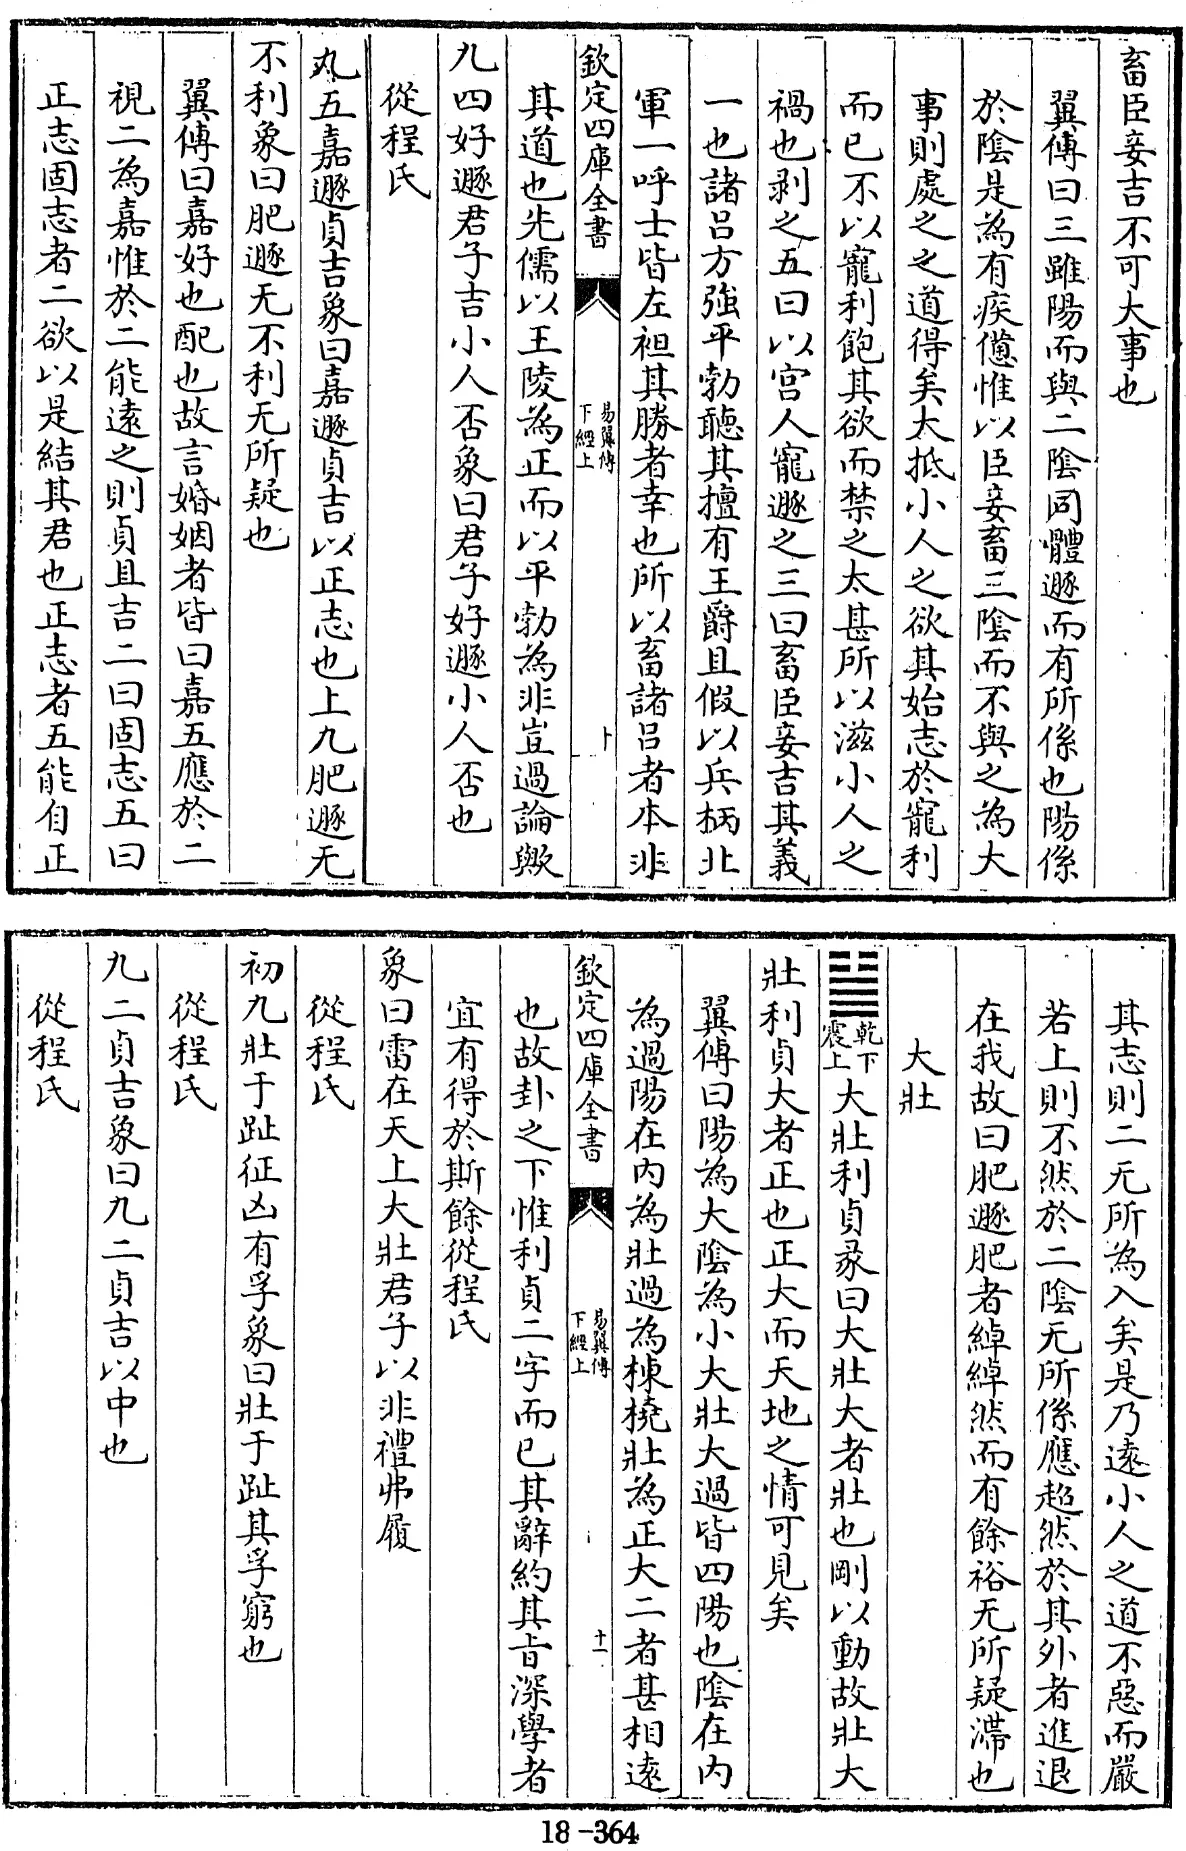 畜臣妾吉不可大事也
翼傳曰三雖陽而與二陰同體遯而有所係也陽係
於陰是為有疾憊惟以臣妾畜三陰而不與之為大
事則處之之道得矣大抵小人之欲其始志於寵利
而已不以寵利飽其欲而禁之太甚所以滋小人之
禍也剥之五曰以宫人寵遯之三曰畜臣妾吉其義
一也諸吕方強平勃聽其擅有王爵且假以兵柄北
軍一呼士皆左袒其勝者幸也所以畜諸吕者本非
欽定四庫全書
易翼傳
下經上
十
其道也先儒以王陵為正而以平勃為非豈過論歟
九四好遯君子吉小人否象曰君子好遯小人否也
從程氏
九五嘉遯貞吉象曰嘉遯貞吉以正志也上九肥遯无
不利象曰肥遯无不利无所疑也
翼傳曰嘉好也配也故言婚姻者皆曰嘉五應於二
視二為嘉惟於二能遠之則貞且吉二曰固志五曰
正志固志者二欲以是結其君也正志者五能自正
其志則二无所為入矣是乃遠小人之道不惡而嚴
若上則不然於二陰无所係應超然於其外者進退
在我故曰肥遯肥者綽綽然而有餘裕无所疑滯也
大壯
䷡乾下
震上大壯利貞彖曰大壯大者壯也剛以動故壯大
壯利貞大者正也正大而天地之情可見矣
翼傳曰陽為大陰為小大壯大過皆四陽也陰在内
為過陽在内為壯過為棟橈壯為正大二者甚相遠
欽定四庫全書
易翼傳
下經上
十一
也故卦之下惟利貞二字而已其辭約其旨深學者
宜有得於斯餘從程氏
象曰雷在天上大壯君子以非禮弗履
從程氏
初九壯于趾征凶有孚象曰壯于趾其孚窮也
從程氏
九二貞吉象曰九二貞吉以中也
從程氏
18-364